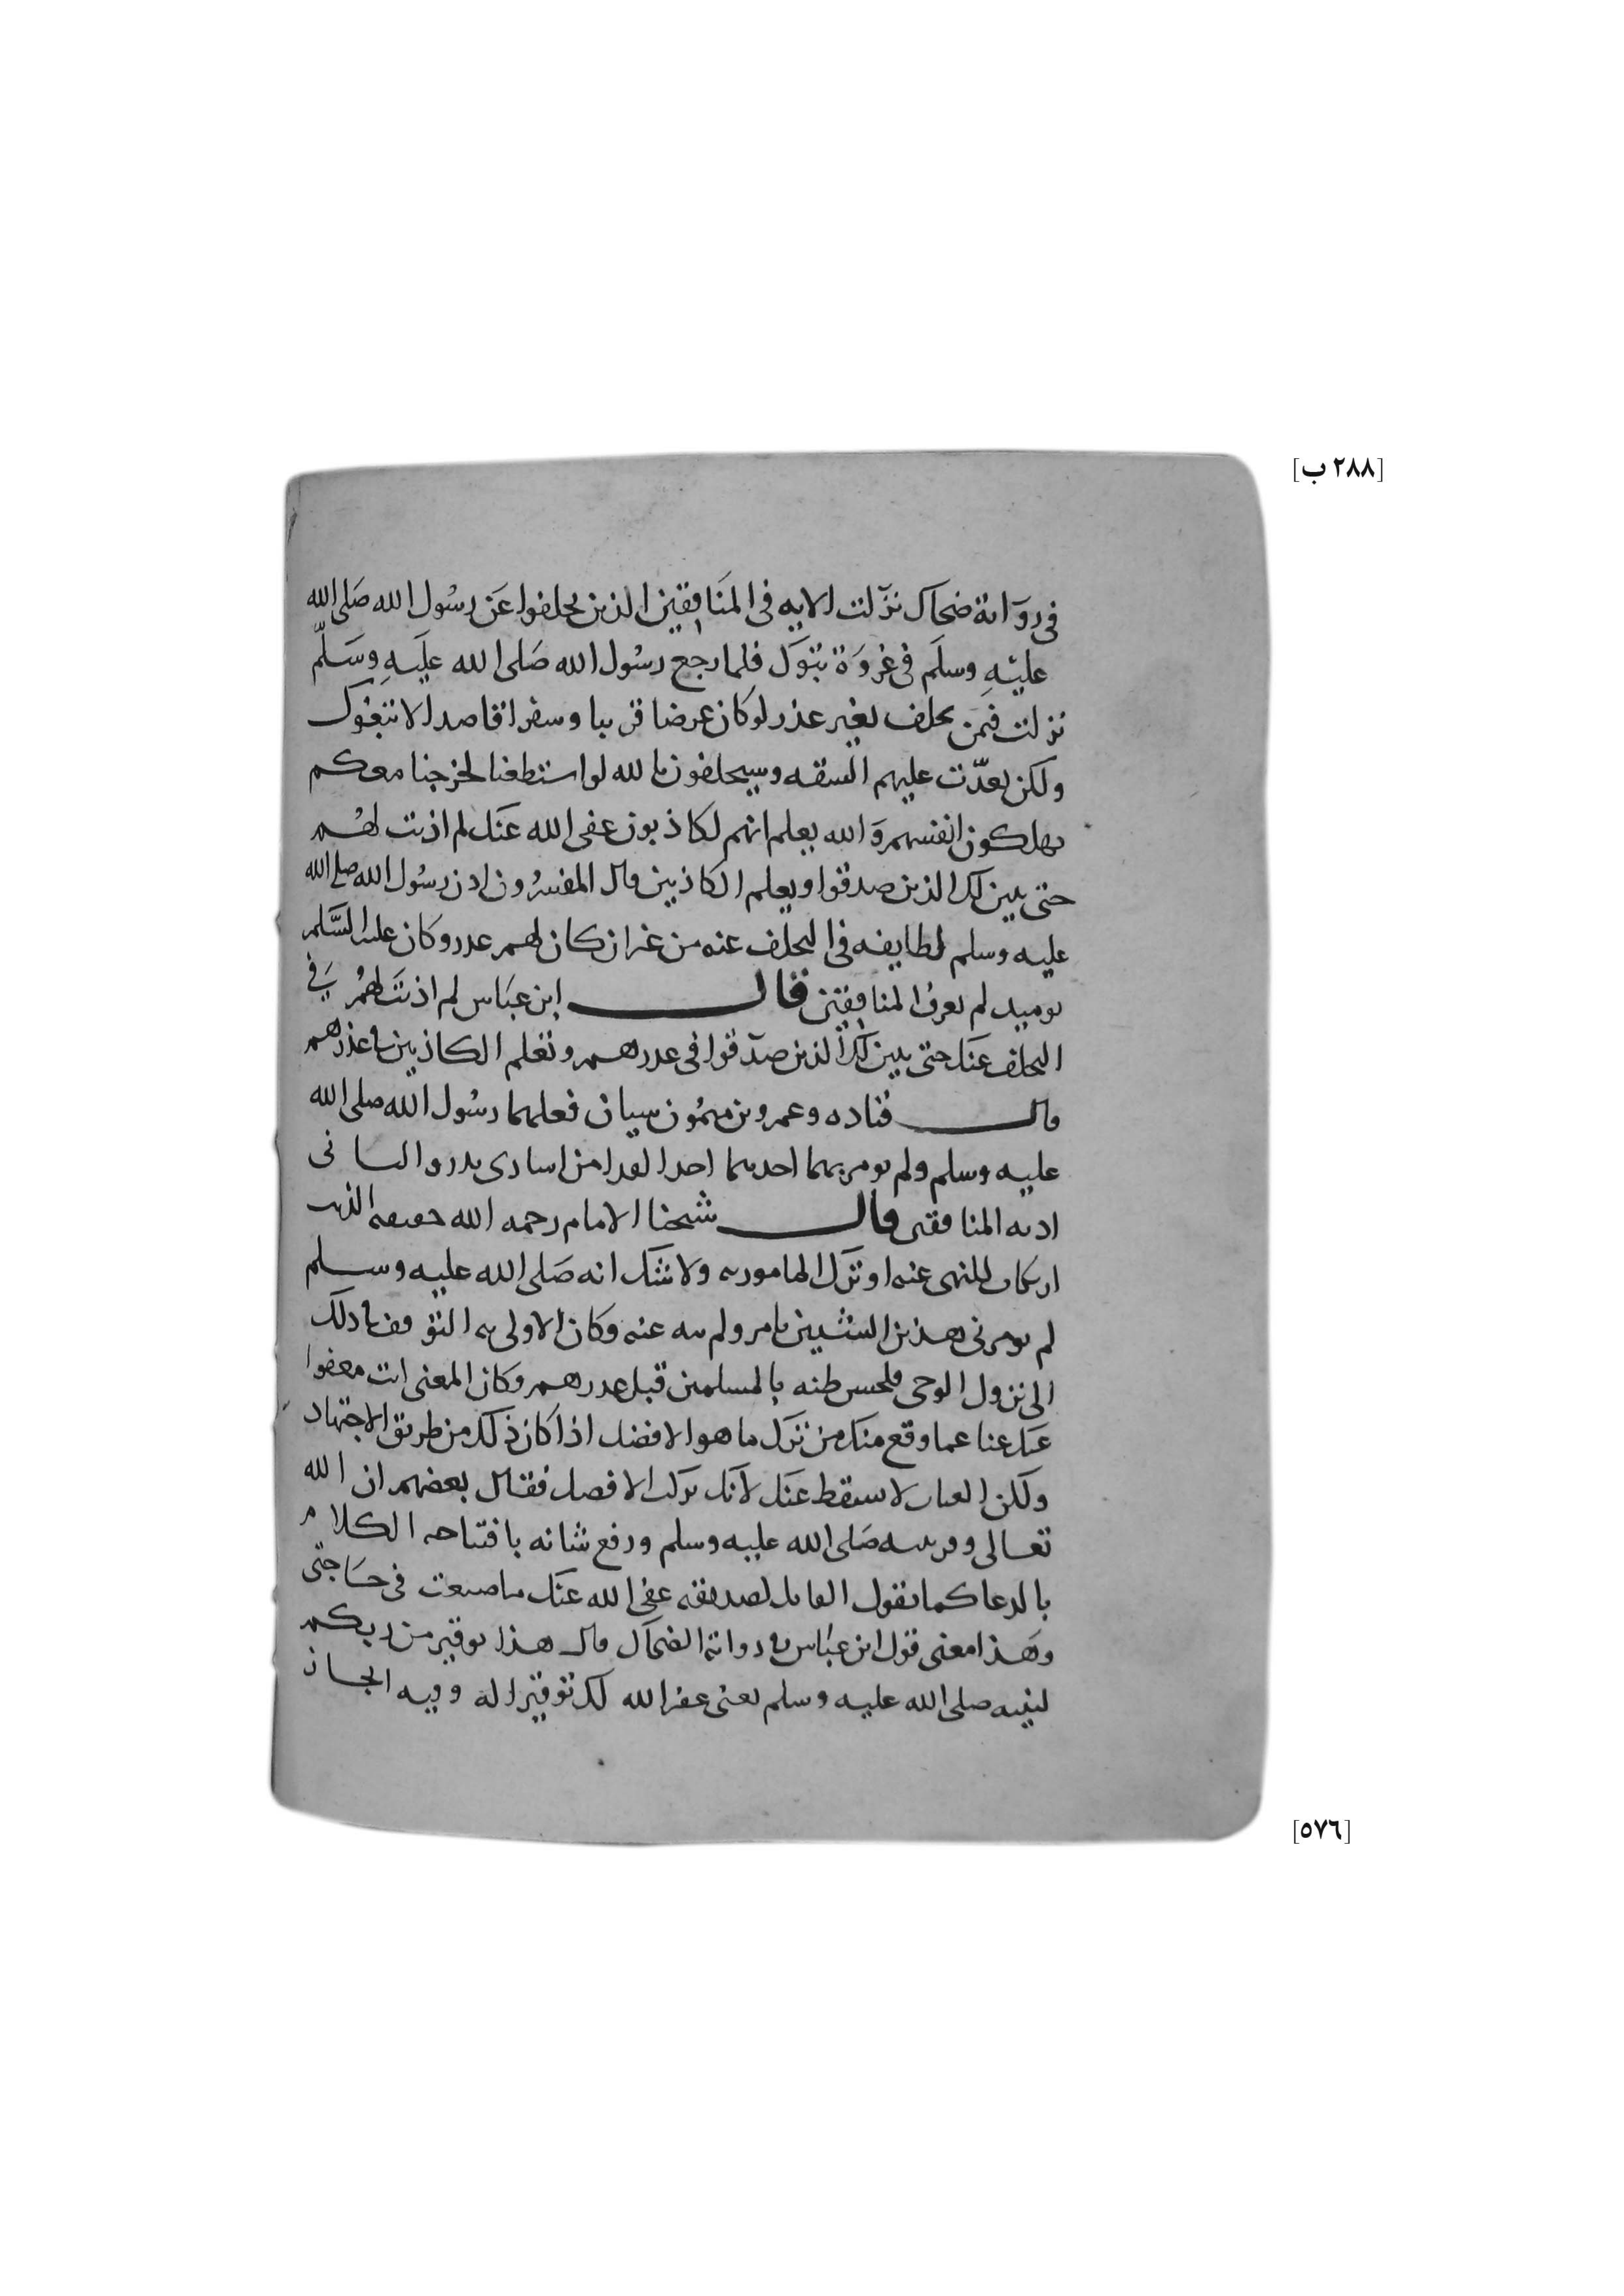 [٢٨٨ ب]
في رواية ضحاك نزلت الايه في المنافقين الذين تخلفوا عن رسول الله صلى الله
عليه وسلم في غزوة تبوك فلما رجع رسول الله صلى الله عليه وسلم
نزلت فيمن تخلف بغير عذر لو كان عرضا قريبا وسفرا قاصدا لاتبعوك
ولكن بعدت عليهم الشقه وسيحلفون بالله لو استطعنا لخرجنا معكم
يهلكون انفسهم والله يعلم انهم لكاذبون عفى الله عنك لم اذنت لهم
حتى يتبين لك الذين صدقوا ويعلم الكاذبين قال المفسرون اذن رسول الله صلى الله
عليه وسلم لطايفه في التخلف عنه من غير ان كان لهم عذر وكان عليه السلم
يوميد لم يعرف المنافقين قال ابن عباس لم اذنت لهم في
التخلف عنك حتى يتبين لك الذين صدقوا في عذرهم وتعلم الكاذبين في عذرهم
قال قتاده وعمرو بن ميمون سيان فعلهما رسول الله صلى الله
عليه وسلم ولم يومر بهما احديهما اخذ الفدا من اسارى بدر والثانى
اذنه المنافقين قال شيخنا الامام رحمه الله حقيقه الذنب
ارتكاب المنهى عنه او ترك المامور به ولا شك انه صلى الله عليه وسلم
لم يومر في هذين الشيئين بامر ولم ينه عنه وكان الاولى به التوقف في ذلك
الى نزول الوحى فلحسن ظنه بالمسلمين قبل عذرهم وكان المعنى انت معفوا
عنك عنا عما وقع منك من ترك ما هو الافضل اذا كان ذلك من طريق الاجتهاد
ولكن العتاب لا يسقط عنك لانك تركت الافضل فقال بعضهم ان الله
تعالى وقر نبيه صلى الله عليه وسلم ورفع شانه بافتتاحه الكلام
بالدعا كما يقول القايل لصديقه عفى الله عنك ما صنعت في حاجتى
وهذا معنى قول ابن عباس في رواية الضحاك قال هذا توقير من ربكم
لنبيه صلى الله عليه وسلم يعنى غفر الله لك توقيرا له وفيه
[٥٧٦]